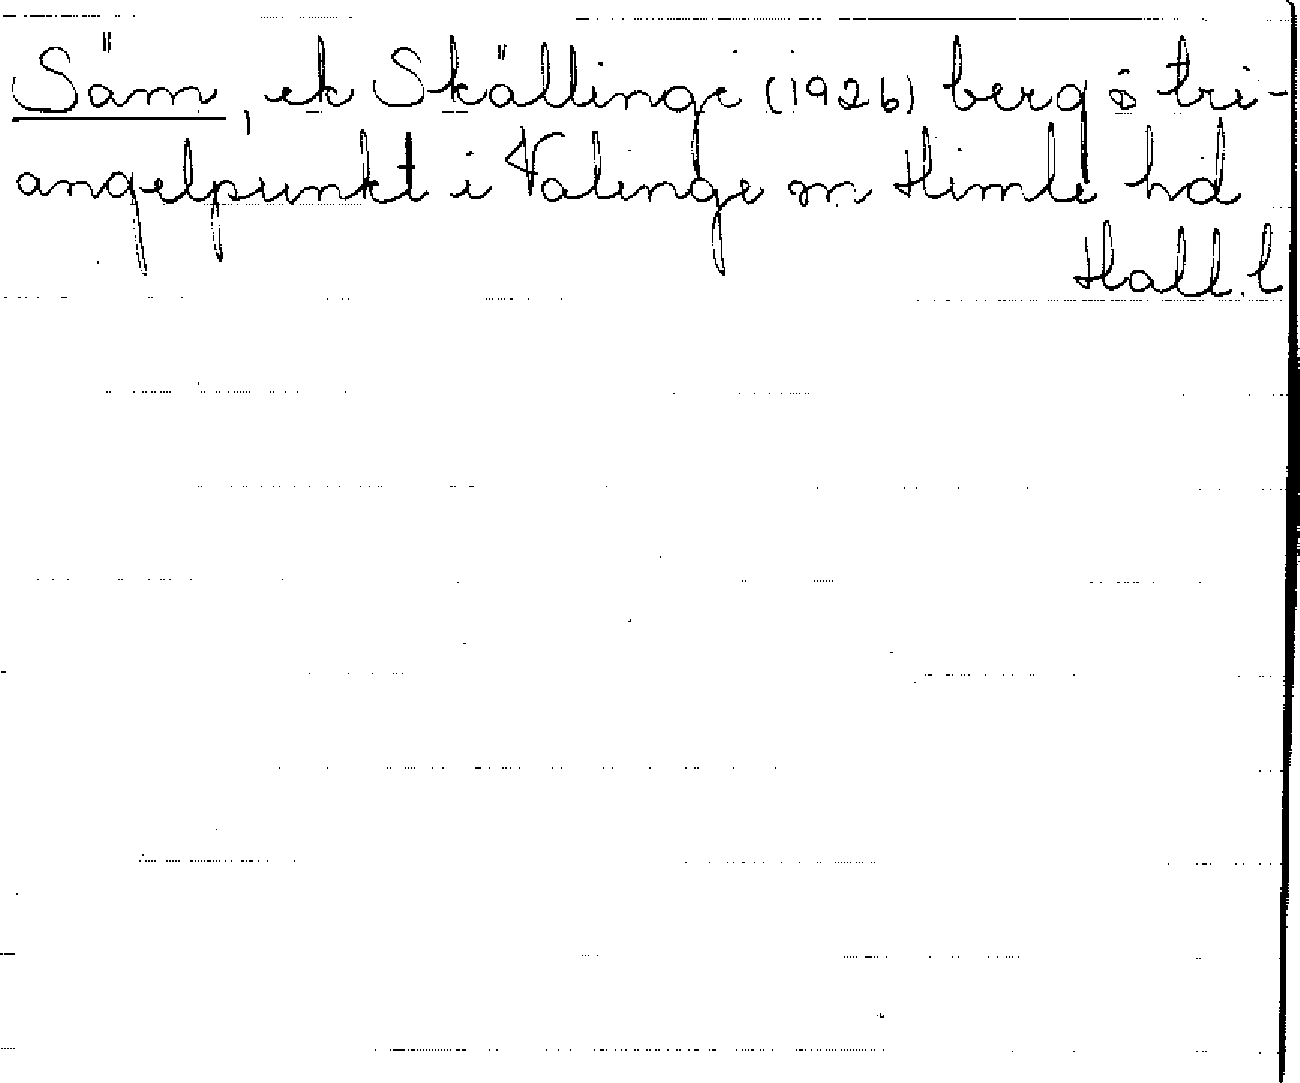 Säm, ek Skällinge (1926) berg o tri-
angelpunkt i Valinge sn Himle hd
Hall. l